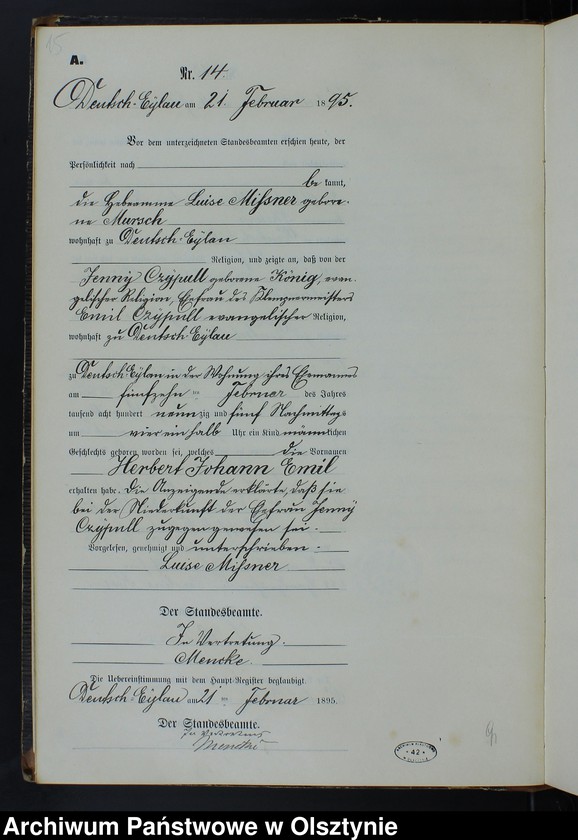 A.
Nr. 14.
Deutsch-Eylau am 21. Februar 1895.
Vor dem unterzeichneten Standesbeamten erschien heute, der
Persönlichkeit nach
be kannt,
die Hebeamme Luise Missner gebore-
ne Mursch
wohnhaft zu Deutsch-Eylau
Religion, und zeigte an, daß von der
Jenny Czypull geborene König, evan-
gelischer Religion, Ehefrau des Klempnermeisters
Emil Czypull evangelischer Religion,
wohnhaft zu Deutsch Eylau
zu Deutsch-Eylau in der Wohnung ihres Ehemannes
am fünfzehn ten Februar des Jahres
tausend acht hundert neun zig und fünf Nachmittags
um vier ein halb Uhr ein Kind männlichen
Geschlechts geboren worden sei, welches die Vornamen
Herbert Johann Emil
erhalten habe. Die Anzeigende erklärte, daß sie
bei der Niederkunft der Ehefrau Jenny
Czypull zugegen gewesen sei.
Vorgelesen, genehmigt und unterschrieben:
Luise Missner
Der Standesbeamte.
In Vertretung.
Mencke.
Die Uebereinstimmung mit dem Haupt-Register beglaubigt
Deutsch-Eylau am 21 ten Februar 1895.
Der Standesbeamte.
In Vertretung
Mencke
42
Archiwum Państwowe w Olsztynie